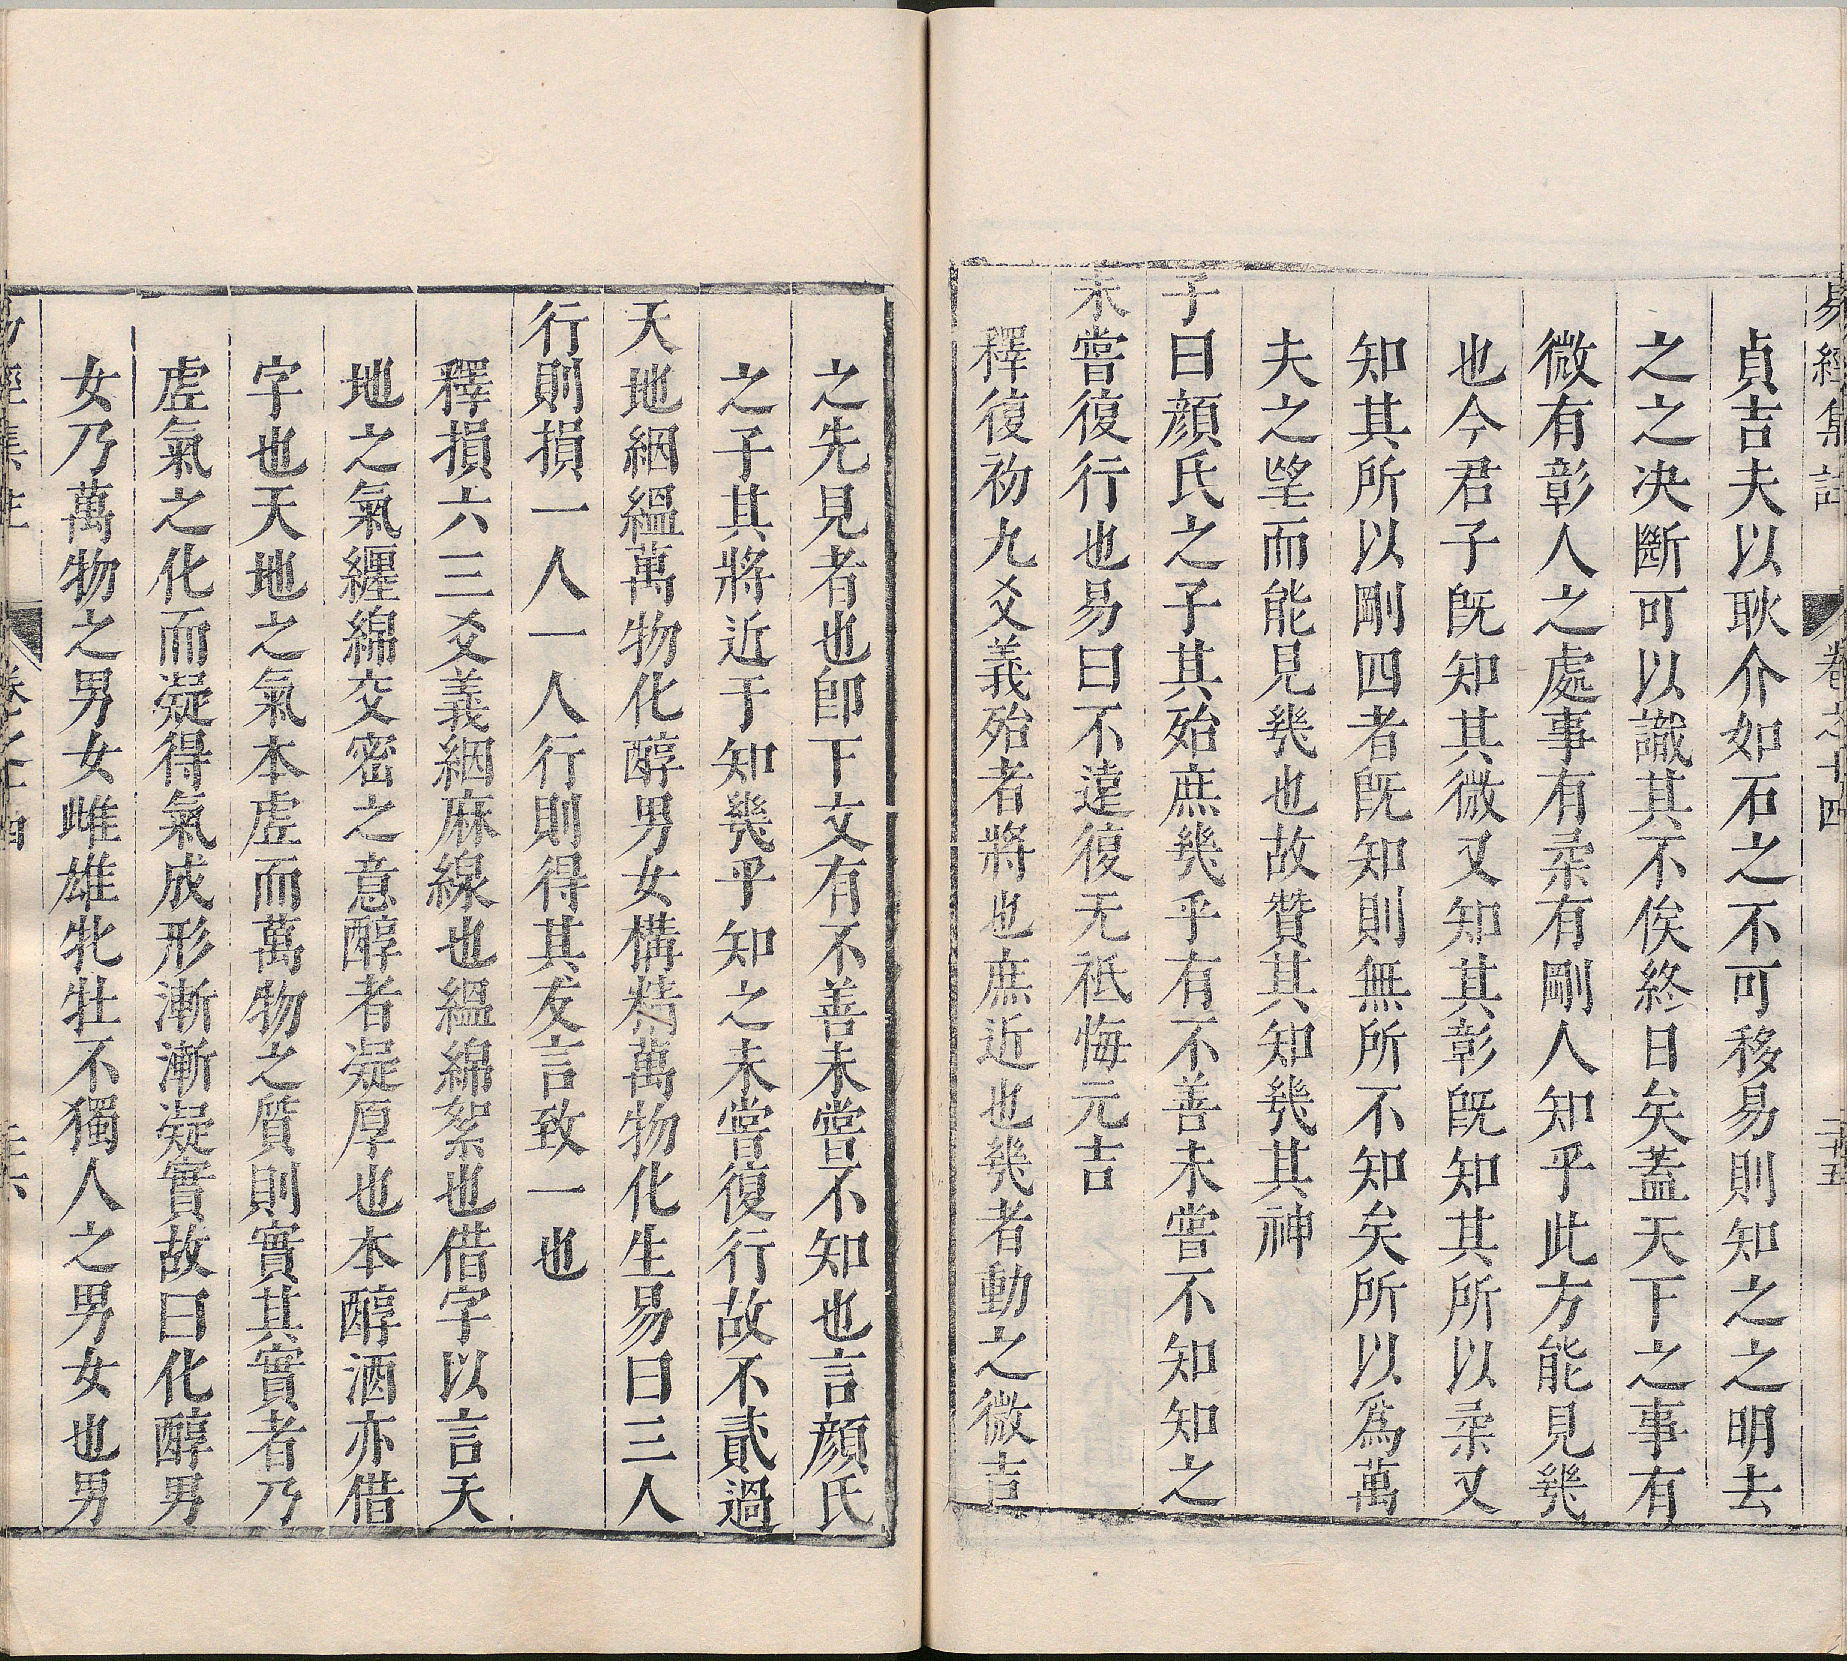 易經集註 卷之十四 二十五
貞吉夫以耿介如石之不可移易則知之之明去
之之决斷可以識其不俟終日矣蓋天下之事有
微有彰人之處事有柔有剛人知乎此方能見幾
也今君子旣知其微又知其彰旣知其所以柔又
知其所以剛四者旣知則無所不知矣所以爲萬
夫之望而能見幾也故贊其知幾其神
子曰顔氏之子其殆庶幾乎有不善未嘗不知知之
未嘗復行也易曰不遠復无祇悔元吉
釋復初九爻義殆者將也庶近也幾者動之微吉
之先見者也卽下文有不善未嘗不知也言顔氏
之子其將近于知幾乎知之未嘗復行故不貳過
天地絪縕萬物化醇男女構精萬物化生易曰三人
行則損一人一人行則得其友言致一也
釋損六三爻義絪麻線也縕綿絮也借字以言天
地之氣纒綿交密之意醇者凝厚也本醇酒亦借
字也天地之氣本虛而萬物之質則實其實者乃
虛氣之化而凝得氣成形漸漸凝實故曰化醇男
女乃萬物之男女雌雄牝牡不獨人之男女也男